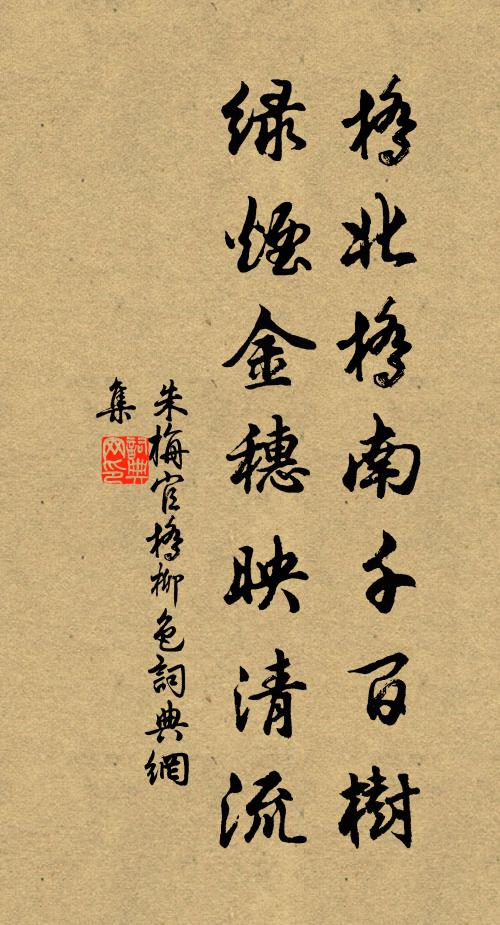 橋北橋南千百樹
綠煙金穗映清流
朱梅官橋柳色詞典網
集
詞典網印